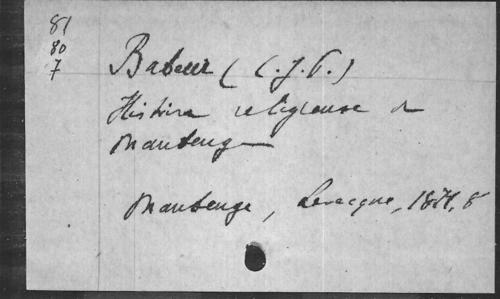 81
80
7
Babeur (C. J. P.)
Histoire religieuse de
Maubeuge
Maubeuge, Levecque, 8